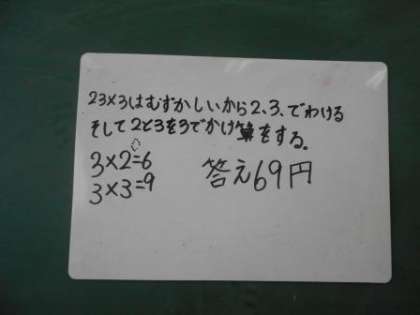 23×3はむずかしいから2、3、でわける
そして2と3を3でかけ算をする。
3×2=6
3×3=9
答え69円